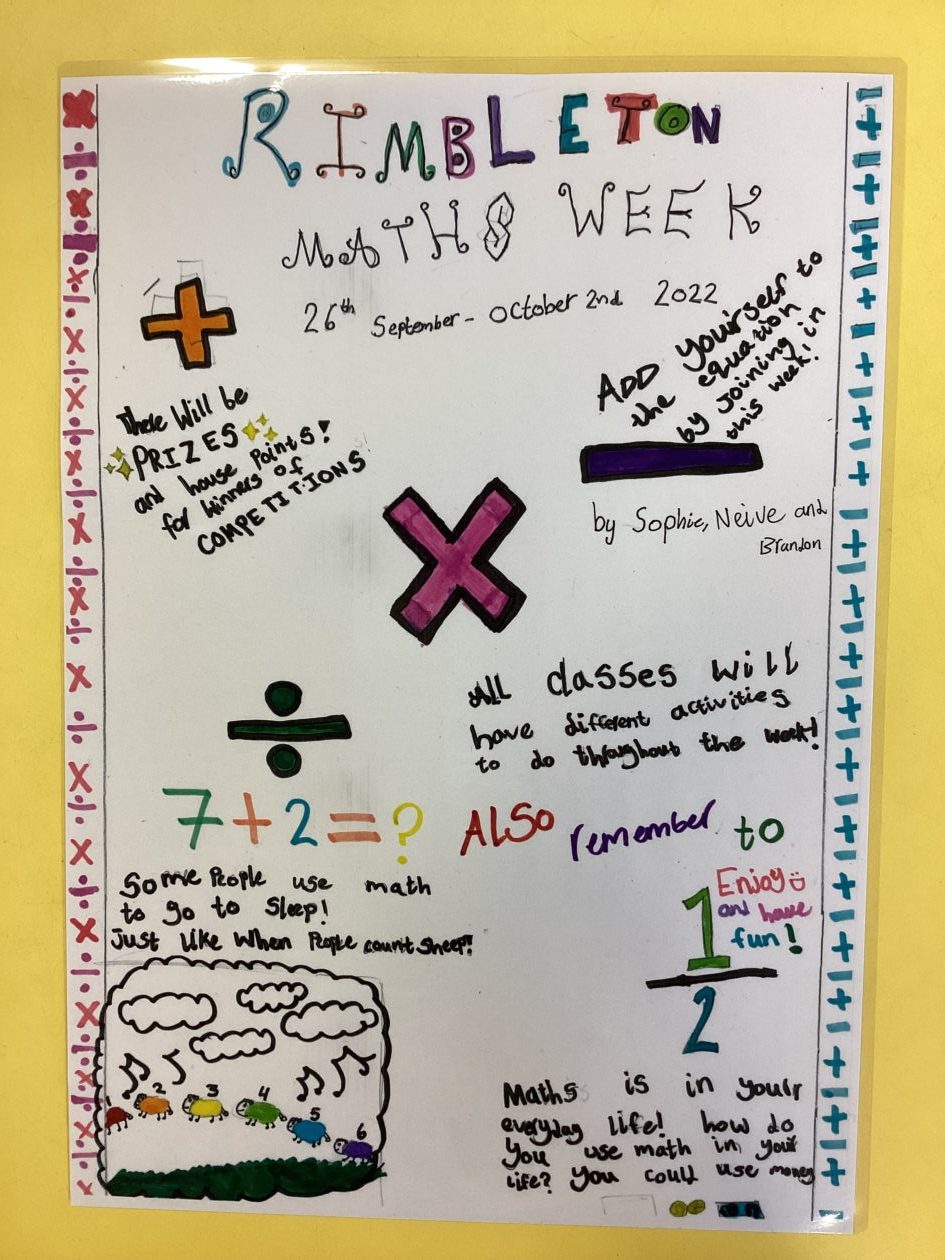 RIMBLETON
MATHS WEEK
26th September - October 2nd 2022
ADD yourself to
the equation
by joining in
this week!
There will be
PRIZES
and house points!
for winners of
COMPETITIONS
by Sophie, Neive and
Brandon
All classes will
have different activities
to do throughout the week!
7+2=?
ALSO remember to
Enjoy
and have
fun!
1
2
Some People use math
to go to sleep!
Just like when People count sheep!
1 2 3 4 5 6
Maths is in your
everyday life! how do
you use math in your
life? you could use money